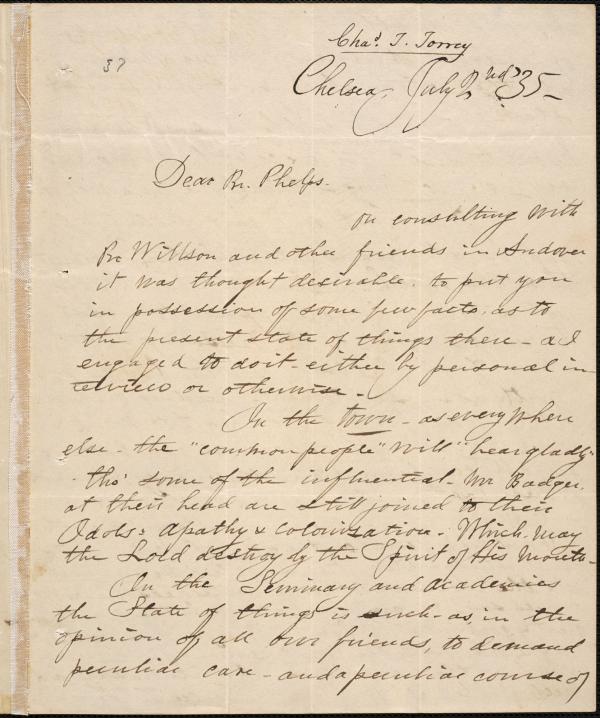 Chas. T. Torrey
37
Chelsea, July 2nd 35-
Dear Br. Phelps.
on consulting with
Br Willson and other friends in Andover
it was thought desirable. to put you
in possession of some few facts, as to
the present state of things there - as I
engaged to do it - either by personal in
terview or otherwise -
In the town - as every where
else - the "common people" will "hear gladly"
tho' some of the influential - Mr Badger.
at their head are still joined to their
Idols: apathy & colonization - Which may
the Lord destroy by the Spirit of His Mouth -
In the Seminary and academies
the State of things is such - as, in the
opinion of all our friends, to demand
peculiar care - and a peculiar course of